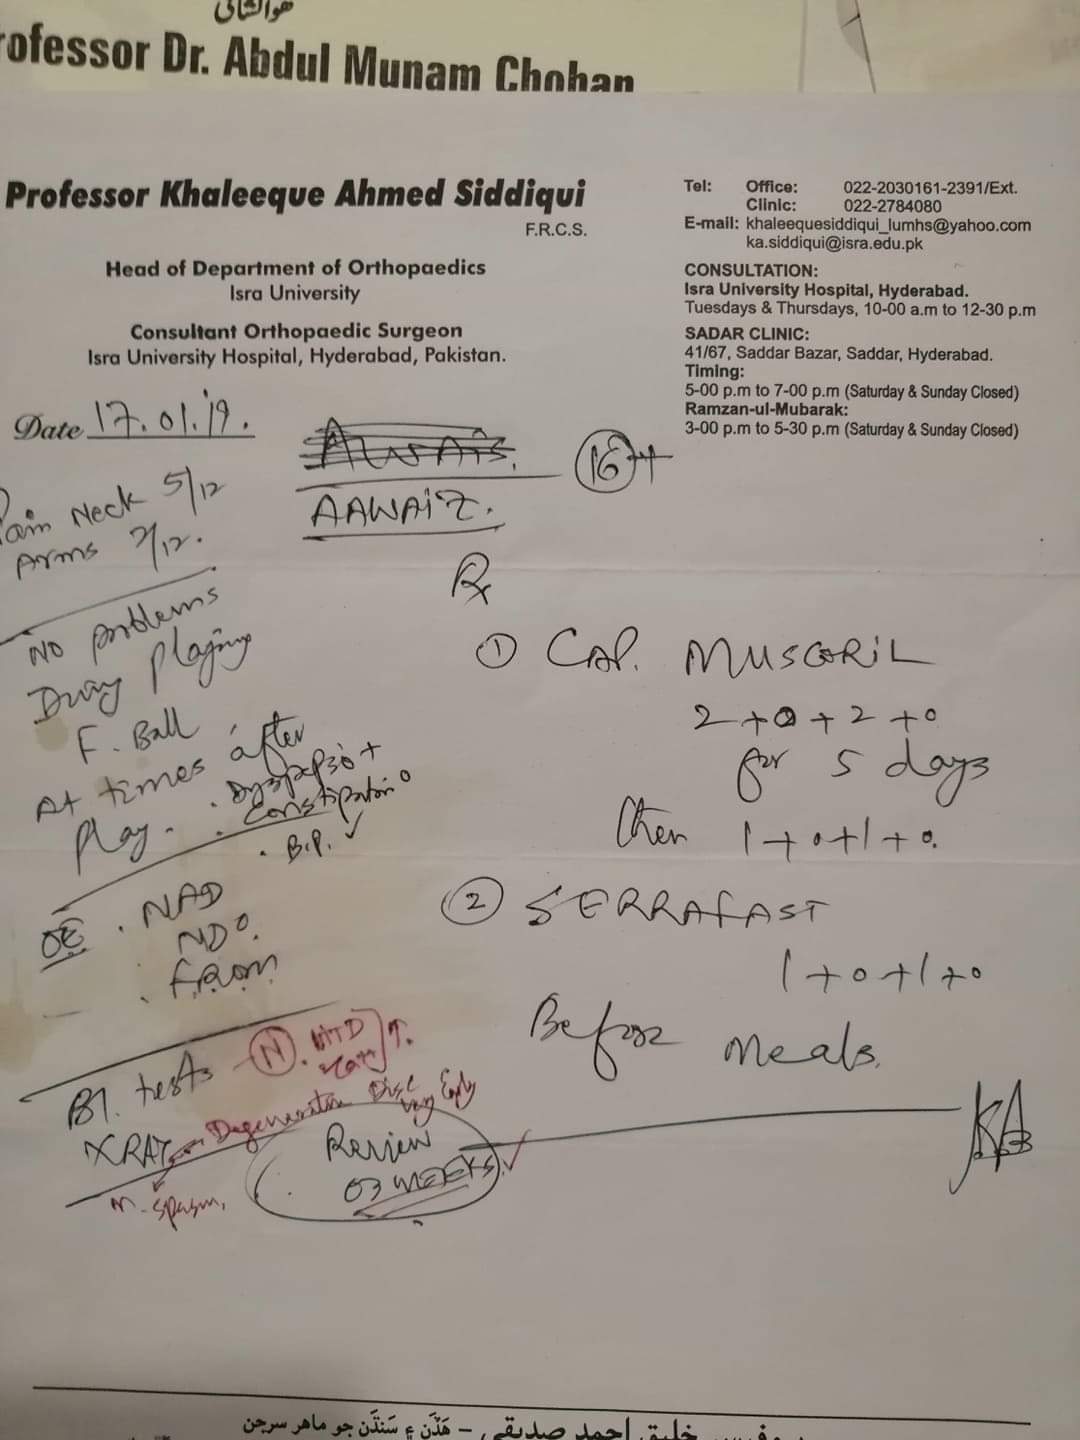 هوالشافی
rofessor Dr. Abdul Munam Chohan
Professor Khaleeque Ahmed Siddiqui
F.R.C.S.
Head of Department of Orthopaedics
Isra University
Consultant Orthopaedic Surgeon
Isra University Hospital, Hyderabad, Pakistan.
Tel: Office: 022-2030161-2391/Ext.
Clinic: 022-2784080
E-mail: khaleequesiddiqui_lumhs@yahoo.com
ka.siddiqui@isra.edu.pk
CONSULTATION:
Isra University Hospital, Hyderabad.
Tuesdays & Thursdays, 10-00 a.m to 12-30 p.m
SADAR CLINIC:
41/67, Saddar Bazar, Saddar, Hyderabad.
Timing:
5-00 p.m to 7-00 p.m (Saturday & Sunday Closed)
Ramzan-ul-Mubarak:
3-00 p.m to 5-30 p.m (Saturday & Sunday Closed)
Date 17.01.19.
AWAIS.
AAWAIZ.
16
Pain Neck 5/12
Arms /12.
No problems
During playing
F. Ball
At times after
play.
. Dyspepsia +
. Constipation o
. B.P. ✓
OE . NAD
ND o.
. FROM
Bl. tests N.
XRAY Degeneration Disc
very Early
M. Spasm,
Review
03 WEEKS. ✓
Rx
① CAP. MUSCORIL
2+0+2+0
for 5 days
then 1+0+1+0.
② SERRAFAST
1+0+1+0
Before Meals.
پروفيسر خليق احمد صديقي – هڏن ۽ سنڌن جو ماهر سرجن